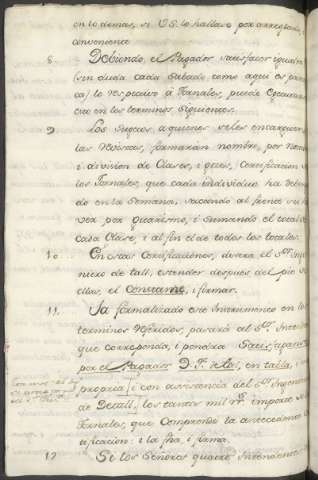 en lo demas, si V.S. lo hallare por arreglado, i
conveniente
8 Debiendo, el Pagador satisfacer igualm
(sin duda cada Sabado como aqui es pra
ca) lo respectivo à Jornales, puede executar
ese en los terminos siguientes.
9 Los Sugetos a quienes se les encarguen
las Revistas, formarán nombre, por nomb
i division de Clases, i pués, Certificacion d
los Jornales, que cada individuo ha deben
do en la Semana, sacando al frente su ha
ver por guarismo, i sumando el total de
cada Clase, i al fin el de todos los totales.
10 En estas Certificaciones, deverá el S.r Inge
niero de tall, estender despues del pie de
ellas, el Constame, i firmar.
11 Ya formalizado este Instrumento en los
terminos referidos, pasará al S.r Inten
que corresponda, i pondrá Satisfagase
por el Pagador D. F. de tal, en tabla, i
propria i con asistencia del S.r Ingeniero
de Detall, los tantos mil r.s importe de
Jornales, que Comprende la antecedente
tificacion: i la fha, i firma.
12 Si los Señores quatro Intendentes